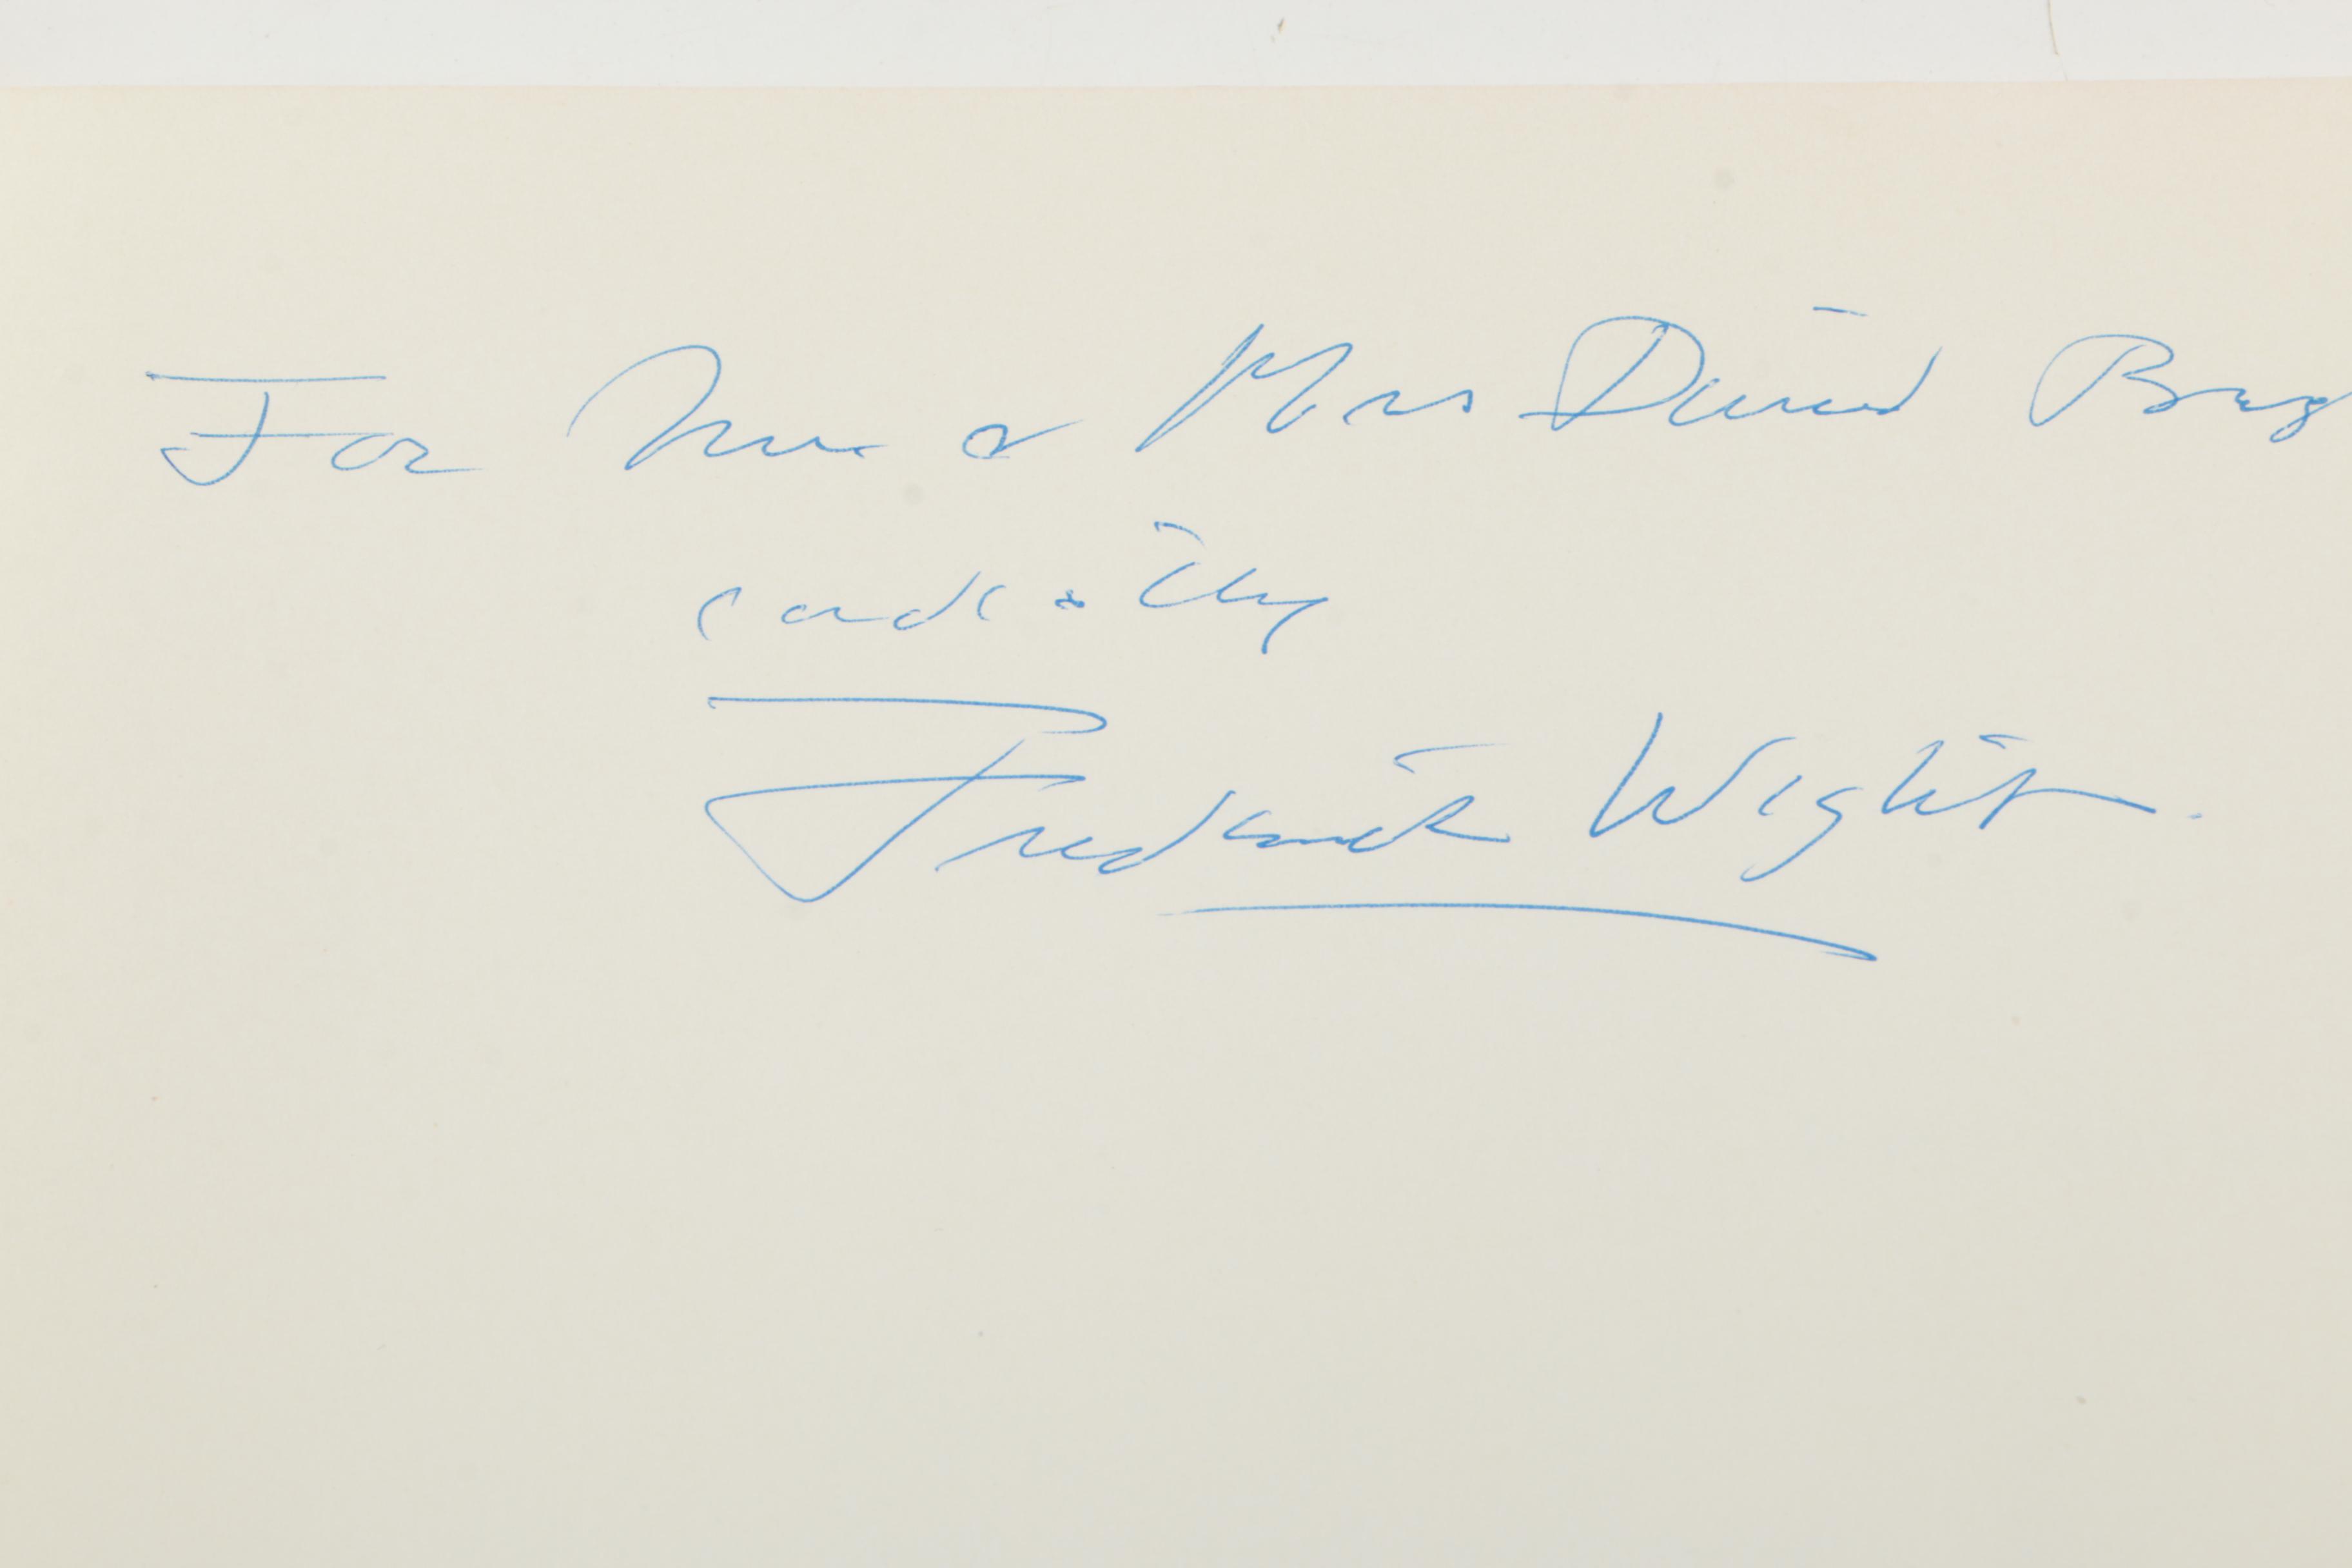 For Mr & Mrs David
cordially
Frederick Wight.